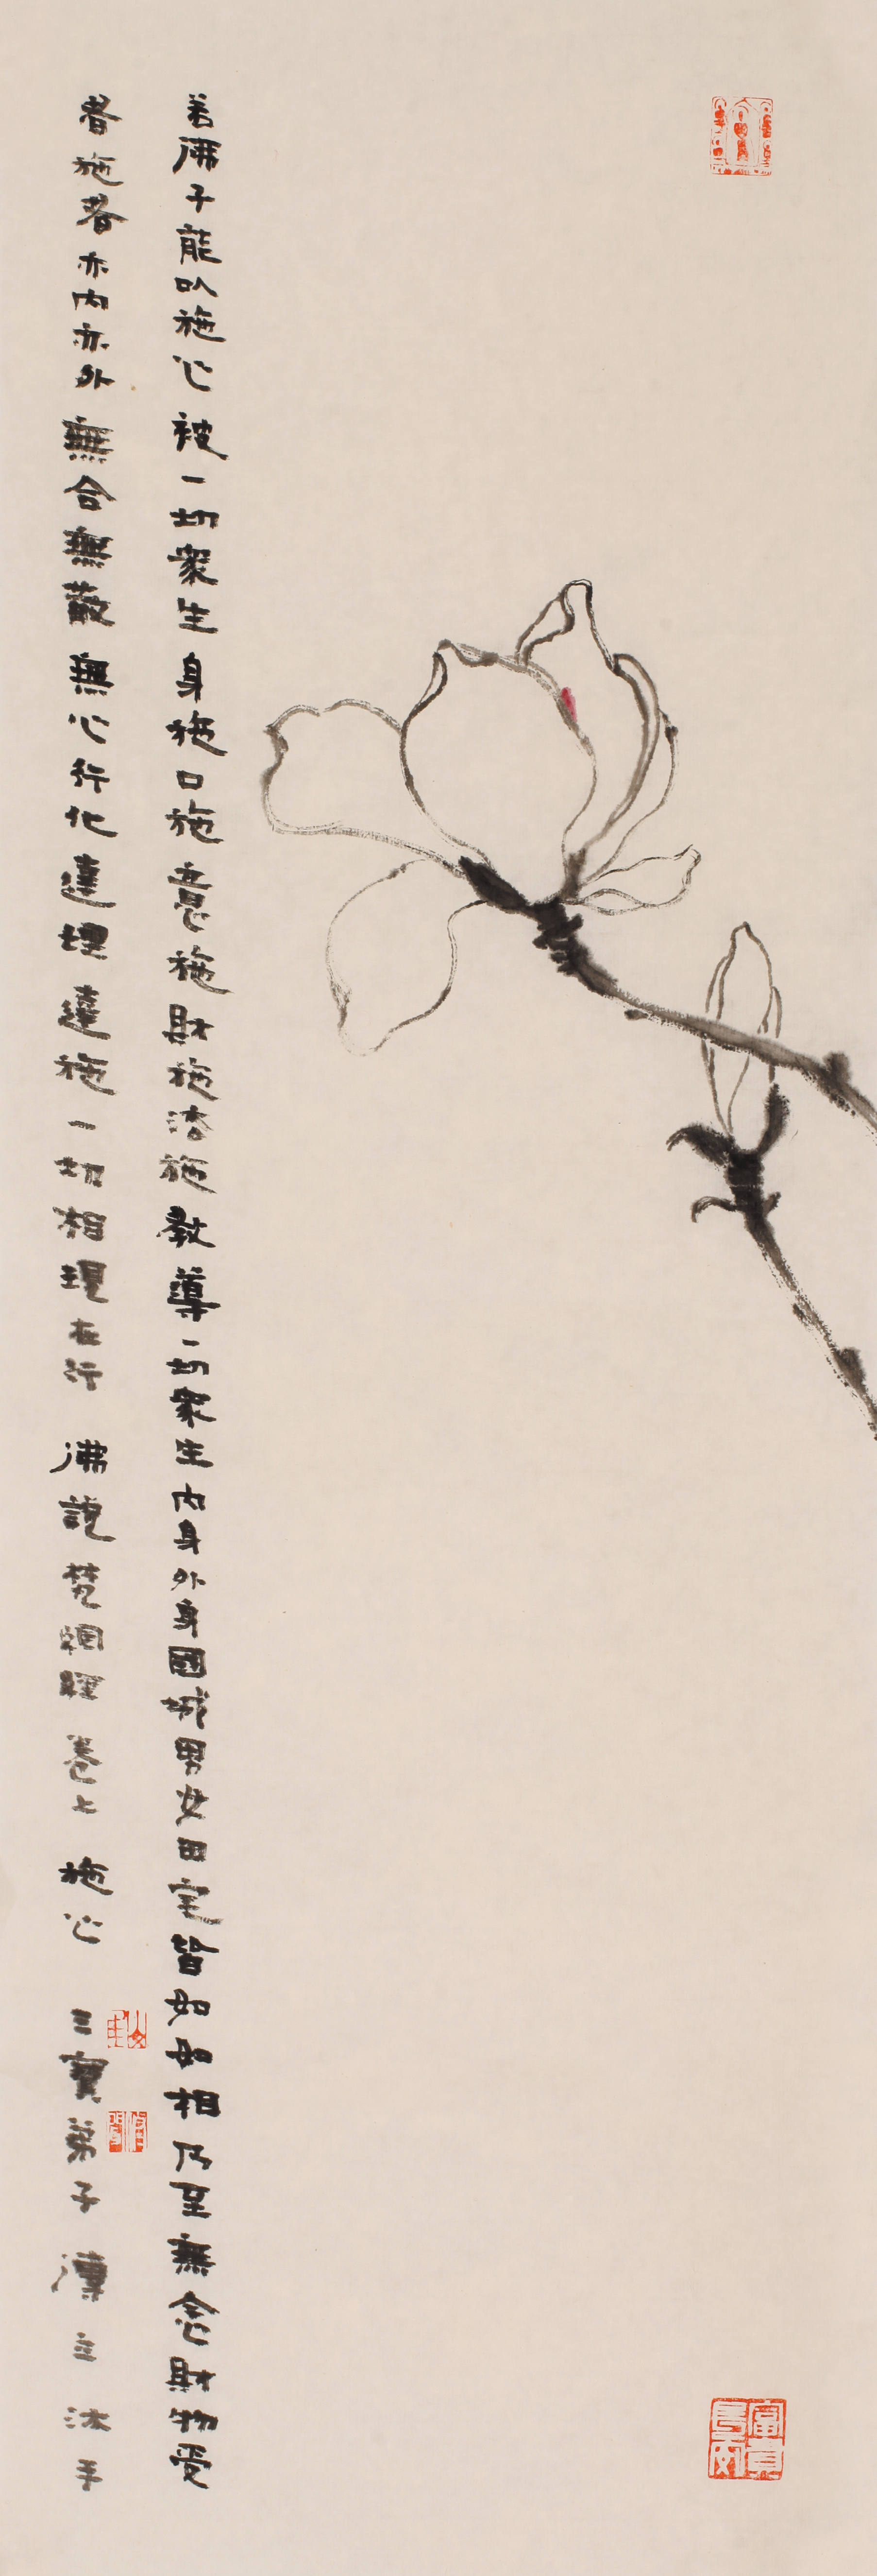 若佛子能以施心被一切衆生身施口施意施財施法施教導一切衆生內身外身國城男女田宅皆如如相乃至無念財物受
者施者亦內亦外無合無散無心行化達理達施一切相現在行 佛說梵網經 卷上 施心 三寶弟子 立 沐手